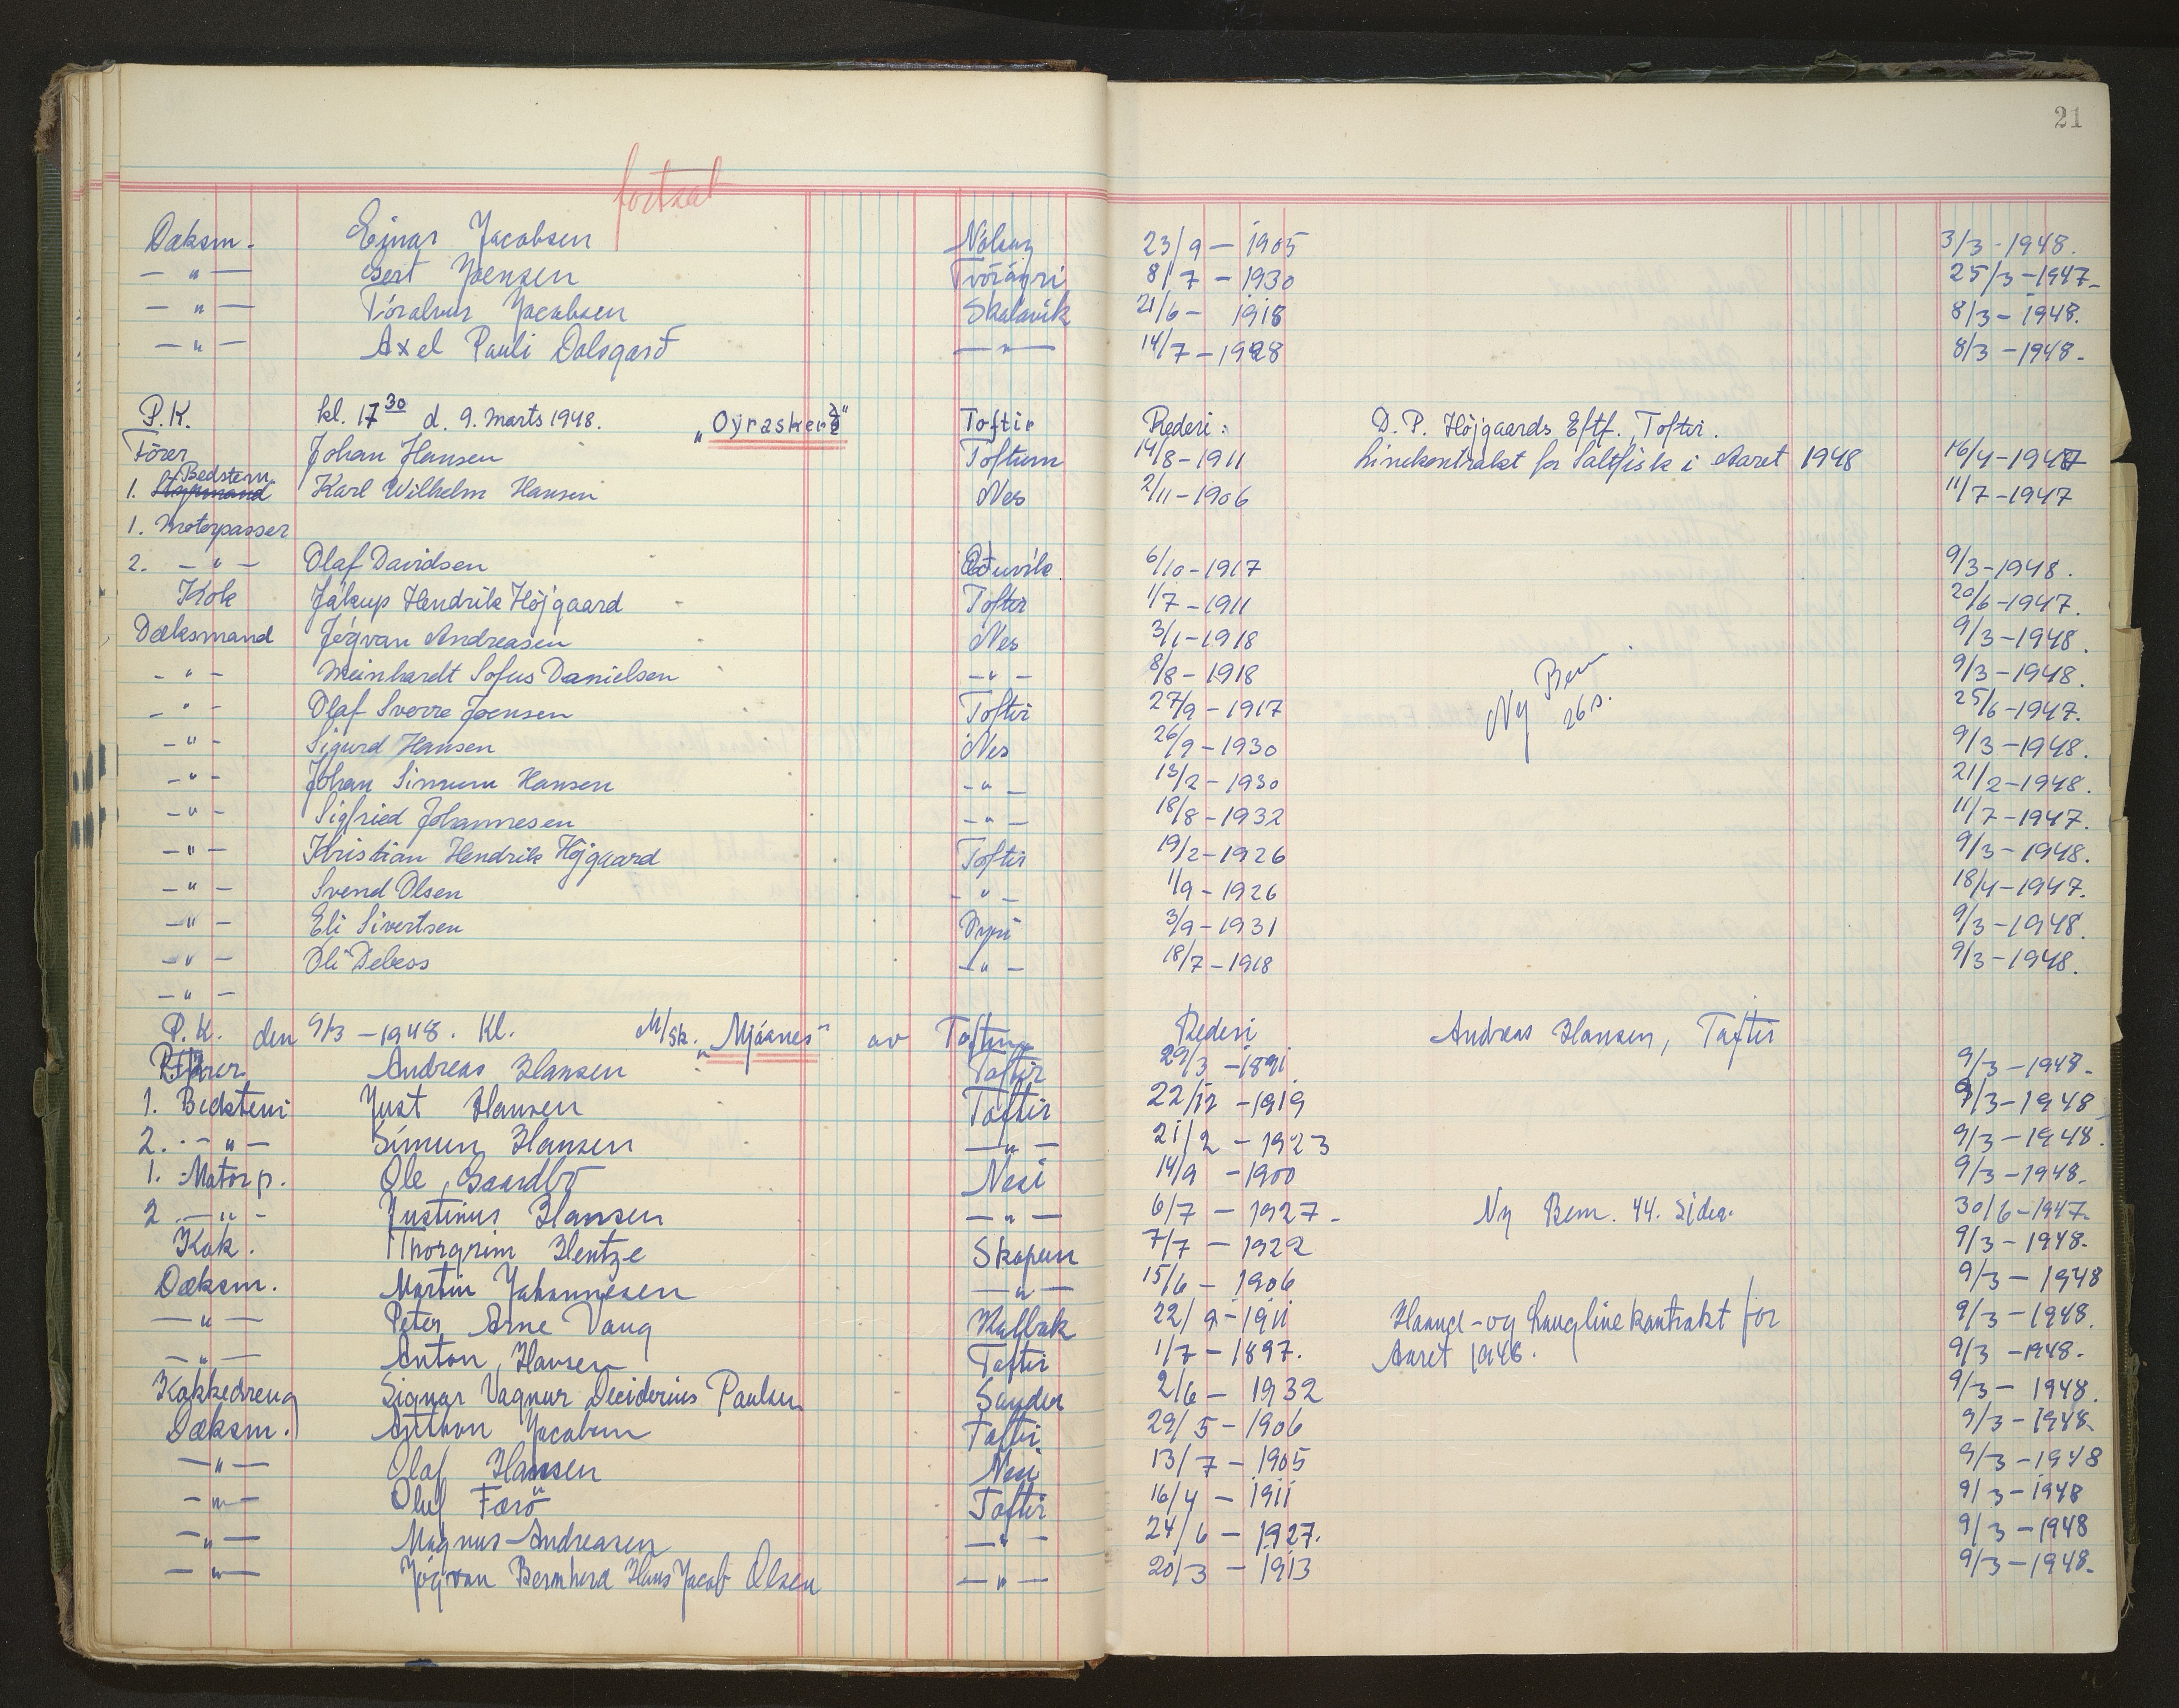 21
fortsat
Dæksm. Ejnar Jacobsen Nolsoy 23/9 - 1905 3/3 - 1948.
- " - Gert Joensen Tvöräyri 8/7 - 1930 25/3 - 1947.
- " - Tóralvur Jacobsen Skálavik 21/6 - 1918 8/3 - 1948.
- " - Axel Pauli Dalsgarð - " - 14/7 - 1928 8/3 - 1948.
P.K. kl. 17 30 d. 9. Marts 1948. "Oyrasker" Toftir Rederi: D. P. Höjgaards Eftf. Toftir.
Förer Johan Hansen Toftum 14/8 - 1911 Linekontrakt for Saltfisk i Aaret 1948 16/4 - 1947
1. Bedstem. Karl Wilhelm Hansen Nes 2/11 - 1906 11/7 - 1947
1. Motorpasser
2. - " - Olaf Davidsen Øduvik 6/10 - 1917 9/3 - 1948.
Kok Jákup Hendrik Höjgaard Toftir 1/7 - 1911 20/6 - 1947.
Dæksmand Jógvan Andreasen Nes 3/1 - 1918 9/3 - 1948.
- " - Meinhardt Sofus Danielsen - " - 8/8 - 1918 Ny Bem. 26 s. 9/3 - 1948.
- " - Olaf Sverre Joensen Toftir 27/9 - 1917 25/6 - 1947.
- " - Sigurd Hansen Nes 26/9 - 1930 9/3 - 1948.
- " - Johan Simun Hansen - " - 13/2 - 1930 21/2 - 1948.
- " - Sigfried Johannesen - " - 18/8 - 1932 11/7 - 1947.
- " - Kristian Hendrik Höjgaard Toftir 19/2 - 1926 9/3 - 1948.
- " - Svend Olsen - " - 1/9 - 1926 18/4 - 1947.
- " - Eli Sivertsen Oyri 3/9 - 1931 9/3 - 1948.
- " - Oli Debess - " - 18/7 - 1918 9/3 - 1948.
- " -
P. K. den 9/3 - 1948. Kl. M/Sk. "Mjóanes" av Toftum Rederi Andreas Hansen, Toftir
Förer Andreas Hansen Toftir 29/3 - 1891 9/3 - 1948.
1. Bedstem Just Hansen Toftir 22/12 - 1919 9/3 - 1948
2. - " - Simun Hansen - " - 21/2 - 1923 9/3 - 1948.
1. Motorp. Ole Gaardbö Nesi 14/9 - 1900 9/3 - 1948.
2. - " - Justinus Hansen - " - 6/7 - 1927. Ny Bem. 44. sider. 30/6 - 1947.
Kok. Thorgrim Hentze Skopun 7/7 - 1922 9/3 - 1948.
Dæksm. Martin Johannesen - " - 15/6 - 1906 9/3 - 1948
- " - Peter Arne Vang Kalbak 22/9 - 1911 Haand- og Langlinekontrakt for 9/3 - 1948.
- " - Anton Hansen Toftir 1/7 - 1897. Aaret 1948. 9/3 - 1948.
Kokkedreng Signar Vagnur Deciderius Paulsen Sander 2/6 - 1932 9/3 - 1948.
Dæksm. Anthon Jacobsen Toftir 29/5 - 1906 9/3 - 1948.
- " - Olaf Hansen Nesi 13/7 - 1905 9/3 - 1948
- " - Oluf Færö Toftir 16/4 - 1911 9/3 - 1948
- " - Magnus Andreasen - " - 24/6 - 1927. 9/3 - 1948
- " - Jógvan Bernhard Hans Jacob Olsen - " - 20/3 - 1913 9/3 - 1948.